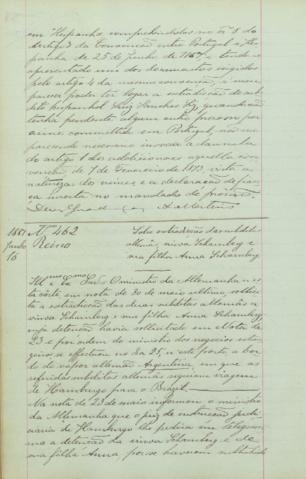 em Hespanha comprehendidos no nº 8 do
Artigo 3 da Convenção entre Portugal e Hes-
panha de 25 de Junho de 1867, e tendo-se
apresentado um dos documentos exigidos
pelo artigo 4 da mesma convenção, a meu
parecer póde ter logar a extradição do sub-
dito hespanhol Luiz Sanches, quando não
tenha pendente algum outro processo por
crime commettido em Portugal, não me
parecendo necessario invocar a clausula
do artigo 1 dos addicionaes áquella con-
venção, de 7 de Fevereiro de 1873, visto a
natureza do crime e a declaração
inserta no mandado de prisão.
Deus Guarde A. Martens
1881 Nº 462
Junho Reino
15
Sobre extradição das subditas
allemãs, viuva Schamberg e
sua filha Anna Schamberg
Illmo e Exmo Snr. O ministro da Allemanha n'es-
ta côrte em nota de 30 de maio ultimo, sollicita
a extradição das duas subditas allemãs a
viuva Schamberg e sua filha Anna Schamberg,
cuja detenção havia sollicitado em Nota de
23 e por ordem do ministro dos negocios estran-
geiros se effectuou no dia 25, n'este porto a bor-
do do vapor allemão Argentina, em que as
referidas subditas allemãs seguiam viagem
de Hamburgo para o Brazil.
Na nota de 23 de maio informou o ministro
da Allemanha que o juiz de instrucção judi-
ciaria de Hamburgo lhe pedira em telegram-
ma a detenção da viuva Schamberg e de
sua filha Anna, por se haverem subtrahido